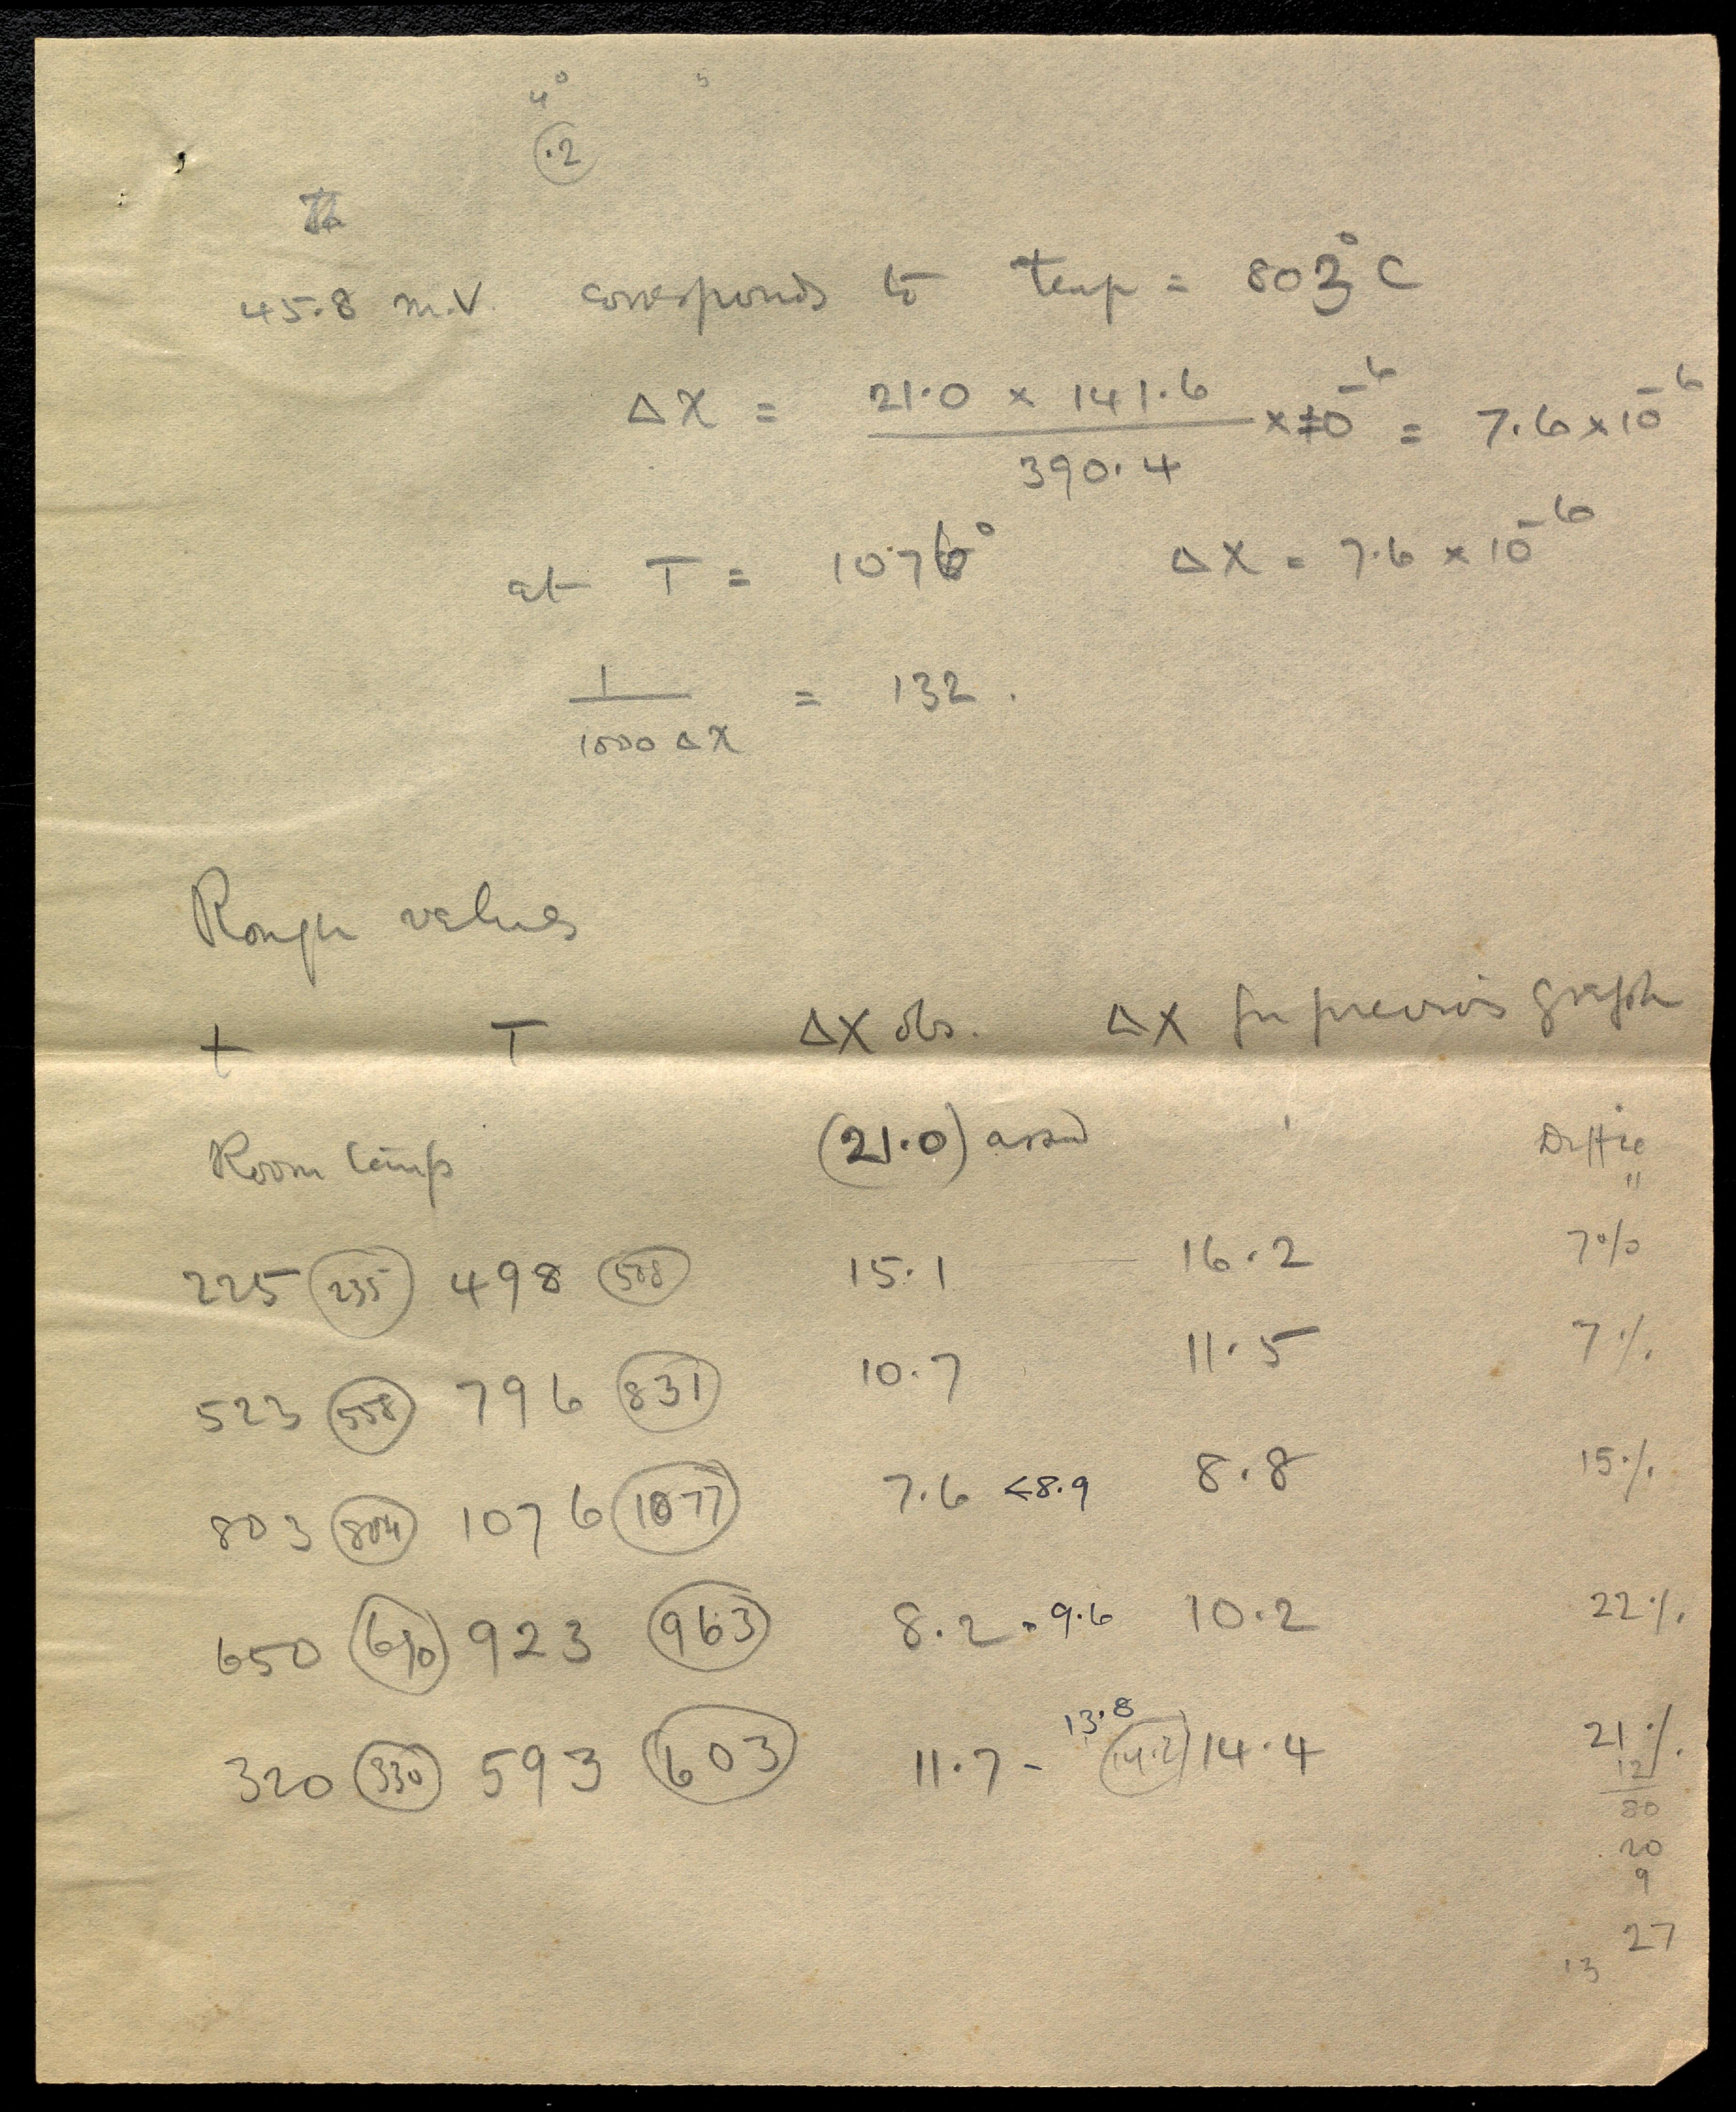 4°
.2
45.8 m.V. corresponds to temp = 803°C
ΔX = 21.0 × 141.6 / 390.4 × 10⁻⁶ = 7.6 × 10⁻⁶
at T = 1076° ΔX = 7.6 × 10⁻⁶
1 / 1000 ΔX = 132.
Rough values
t T ΔX obs. ΔX fm previous graph
Room temp (21.0) assd Diffce
225 235 498 508 15.1 16.2 7%
523 558 796 831 10.7 11.5 7%
803 804 1076 1077 7.6 <8.9 8.8 15%
650 690 923 963 8.2 - 9.6 10.2 22%
320 330 593 603 11.7 - 13.8 14.2 14.4 21%
12
80
20
9
27
13